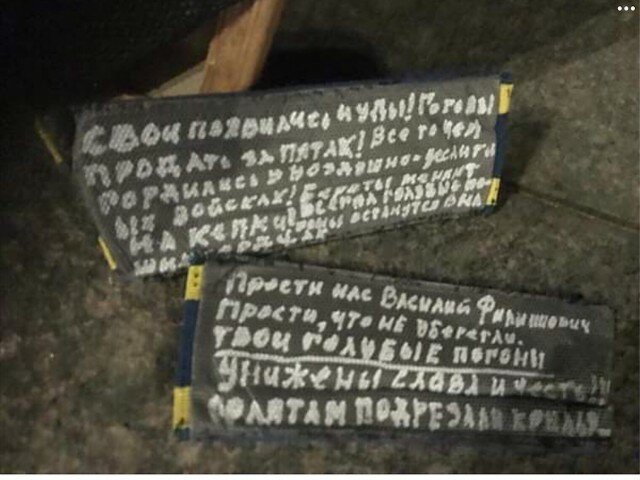 СВОИ ПОЯВИЛИСЬ ЧУПЫ! ГОТОВЫ
ПРОДАТЬ ЗА ПЯТАК! ВСЕ ТО ЧЕМ
ГОРДИЛИСЬ У ВОЗДУШНО-ДЕСАНТН
ЫХ ВОЙСКАХ! БЕРЕТЫ МЕНЯЮТ
НА КЕПКИ!
Прости нас Василий Филиппович
Прости, что не уберегли.
ТВОИ ГОЛУБЫЕ ПОГОНЫ
УНИЖЕНЫ СЛАВА И ЧЕСТЬ!!
ПОЛЯТАМ ПОДРЕЗАЛИ КРЫЛЬЯ